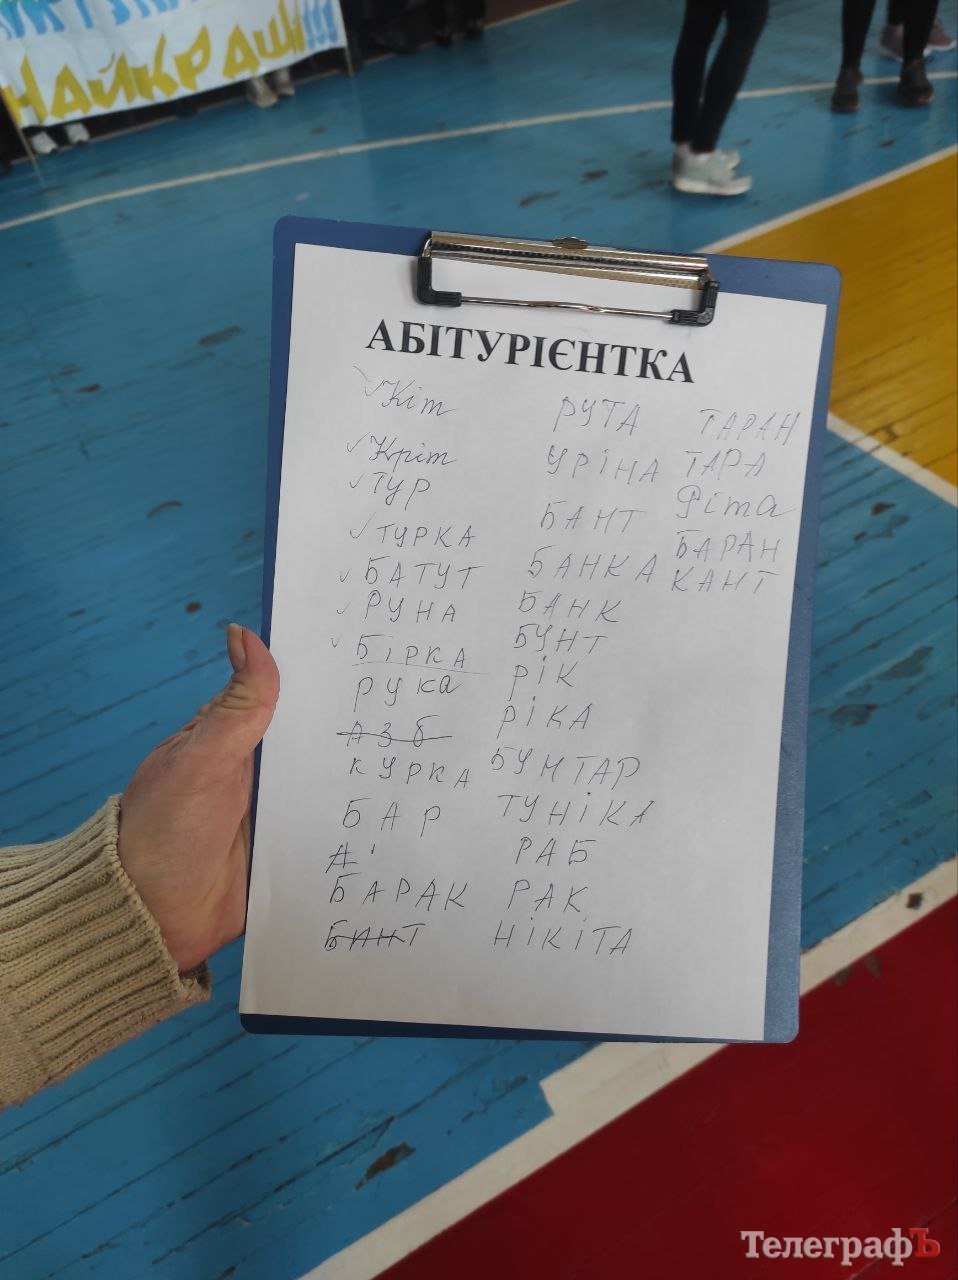 НАЙКРАЩІ!!!
АБІТУРІЄНТКА
Кіт
Кріт
ТУР
ТУРКА
БАТУТ
РУНА
БІРКА
рука
АЗБ
КУРКА
БАР
А'
БАРАК
БАНТ
РУТА
УРІНА
БАНТ
БАНКА
БАНК
БУНТ
РІК
РІКА
БУНТАР
ТУНІКА
РАБ
РАК
НІКІТА
ТАРАН
ТАРА
Ріта
БАРАН
КАНТ
ТелеграфЪ